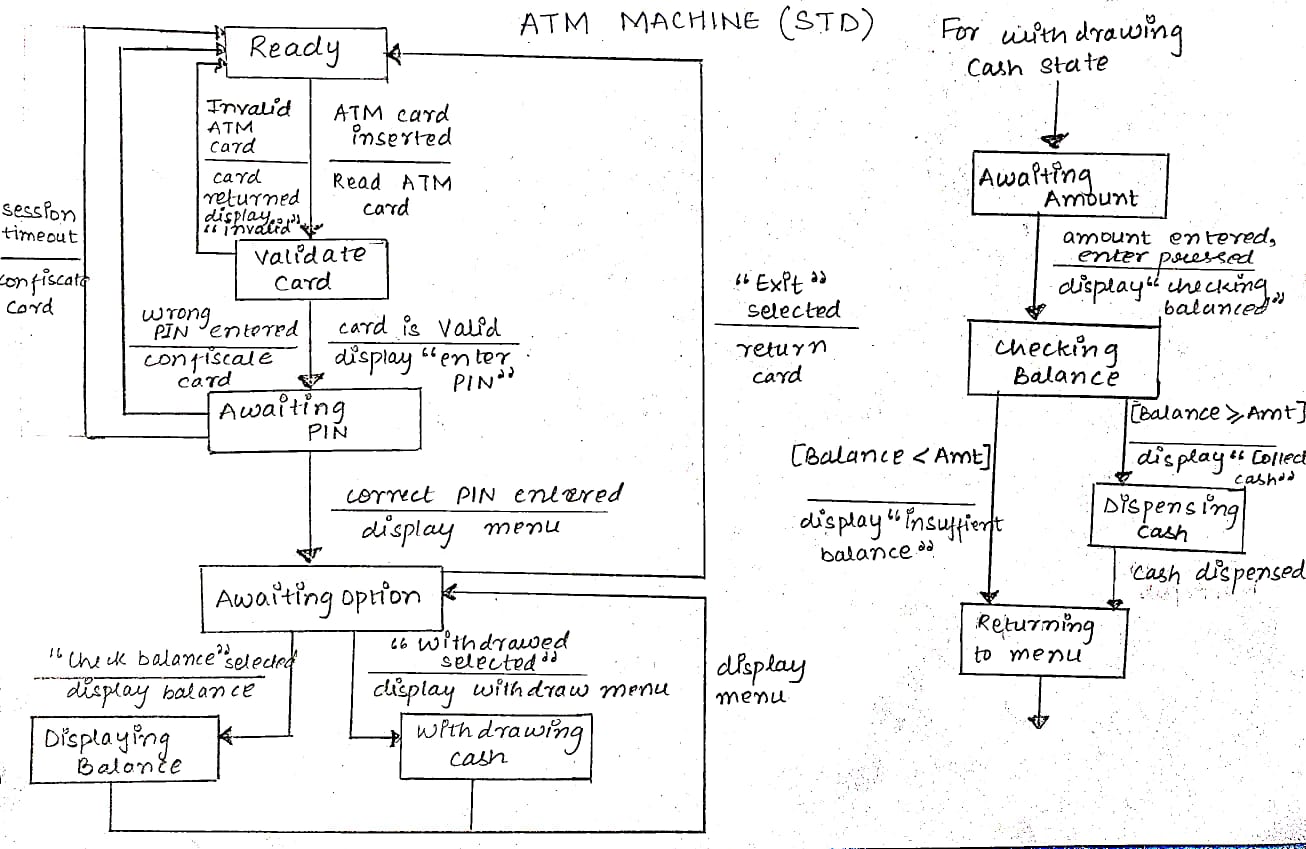 ATM MACHINE (STD)
Ready
Invalid
ATM
card
card
returned
display
"invalid"
ATM card
inserted
Read ATM
card
session
timeout
confiscate
card
Validate
card
wrong
PIN entered
confiscale
card
card is valid
display "enter
PIN"
Awaiting
PIN
correct PIN entered
display menu
"Exit"
selected
return
card
Awaiting option
"Check balance" selected
display balance
"withdrawed
selected"
display withdraw menu
display
menu
Displaying
Balance
withdrawing
cash
For withdrawing
Cash state
Awaiting
Amount
amount entered,
enter pressed
display "checking
balanced"
Checking
Balance
[Balance < Amt]
display "insuffient
balance"
[Balance ⩾ Amt]
display "Collect
cash"
Dispensing
Cash
cash dispensed
Returning
to menu